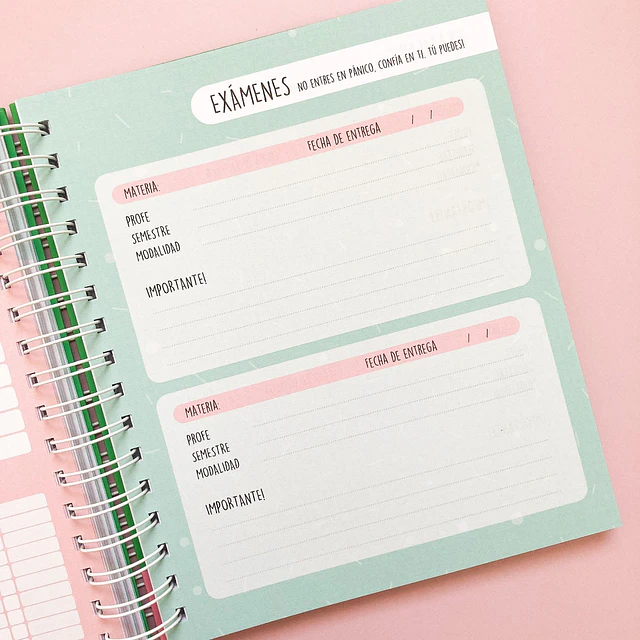 EXÁMENES NO ENTRES EN PÁNICO, CONFÍA EN TI, TÚ PUEDES!
MATERIA: FECHA DE ENTREGA / /
PROFE
SEMESTRE
MODALIDAD
IMPORTANTE!
MATERIA: FECHA DE ENTREGA / /
PROFE
SEMESTRE
MODALIDAD
IMPORTANTE!